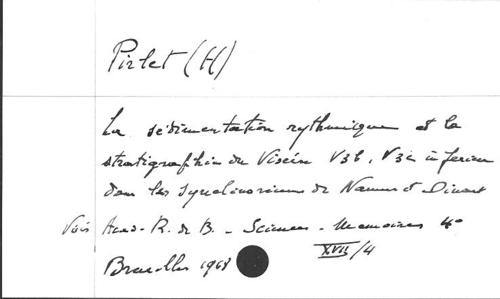 Pirlet (H)
La sédimentation rythmique et la
stratigraphie du Viséen V3b, V3c inférieur
dans les synclinoriums de Namur et Dinant
Voir Acad. R. de B. - Sciences - Memoires 4°
XVII/4
Bruxelles 1968